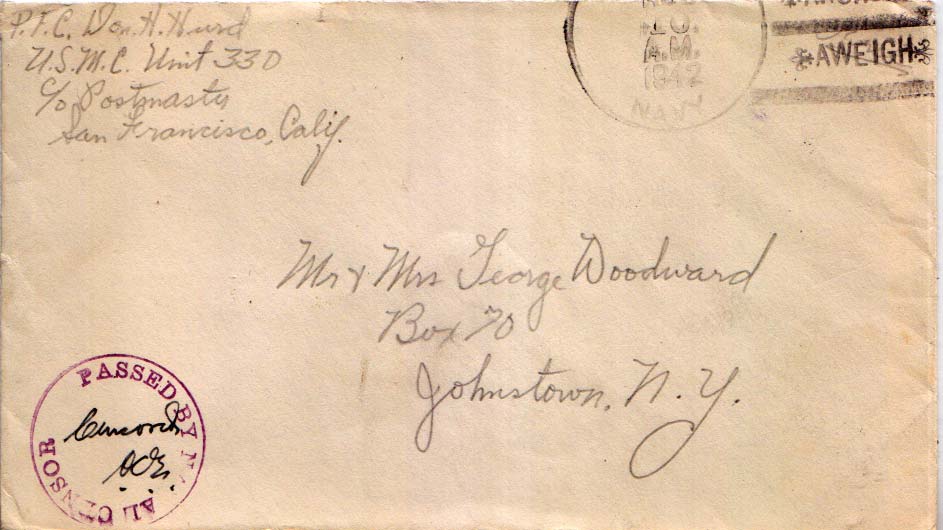 P.F.C. Don. H. Hurd
U.S.M.C. Unit 330
c/o Postmaster
San Francisco, Calif.
10
A.M.
1942
NAVY
AWEIGH
Mr & Mrs George Woodward
Box 70
Johnstown, N.Y.
PASSED BY N AL CENSOR
Censored